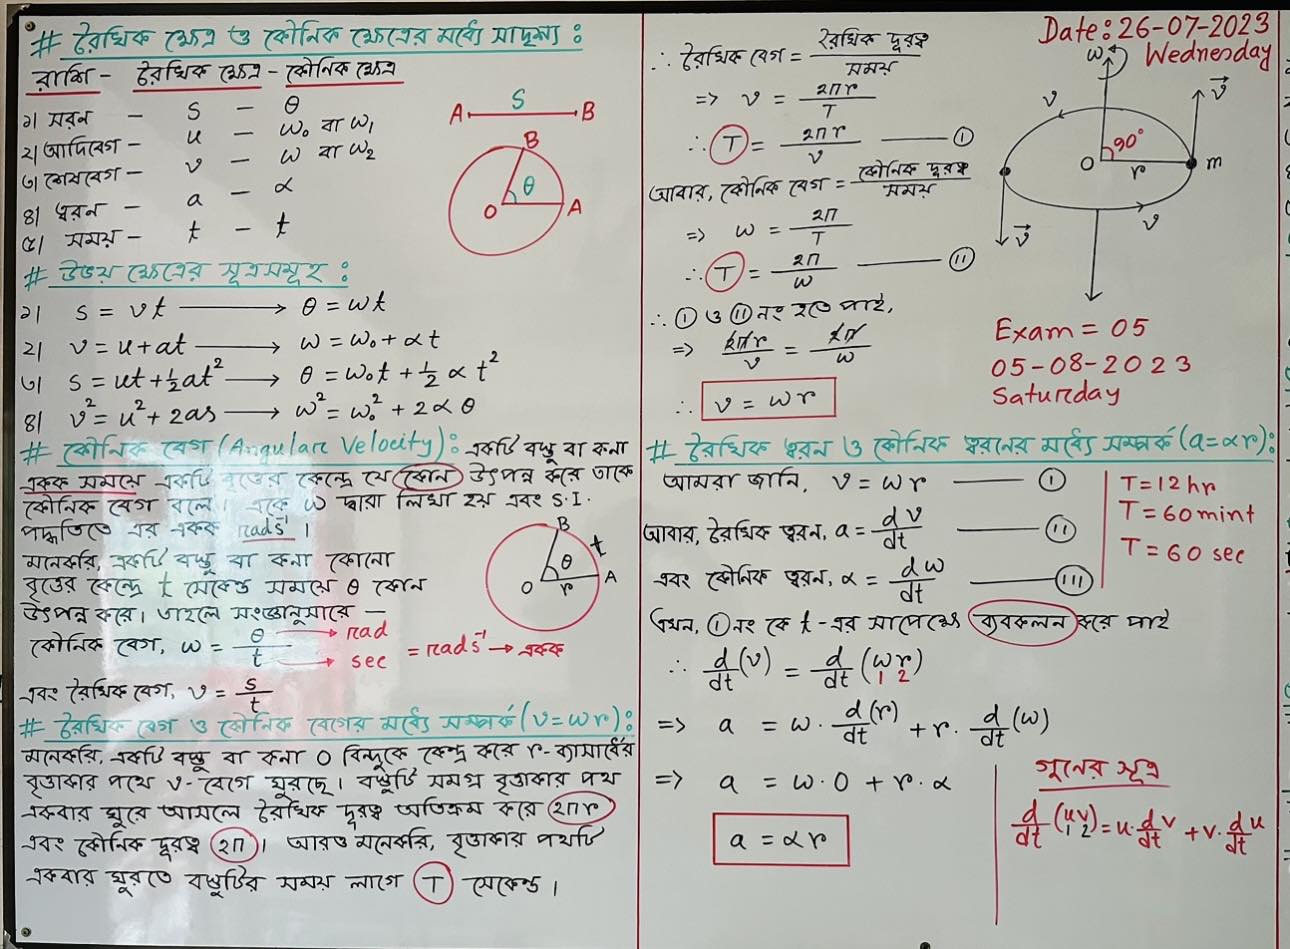 # রৈখিক ক্ষেত্র ও কৌনিক ক্ষেত্রের মধ্যে সাদৃশ্য :
রাশি - রৈখিক ক্ষেত্র - কৌনিক ক্ষেত্র
১। সরন - s - θ
২। আদিবেগ - u - ω₀ বা ω₁
৩। শেষবেগ - v - ω বা ω₂
৪। ত্বরন - a - α
৫। সময় - t - t
A S B
B
θ
O A
# উভয় ক্ষেত্রের সূত্রসমূহ :
১। s = vt → θ = ωt
২। v = u + at → ω = ω₀ + αt
৩। s = ut + ½at² → θ = ω₀t + ½αt²
৪। v² = u² + 2as → ω² = ω₀² + 2αθ
# কৌনিক বেগ (Angular Velocity) : একটি বস্তু বা কনা
একক সময়ে একটি বৃত্তের কেন্দ্রে যে কোন উৎপন্ন করে তাকে
কৌনিক বেগ বলে। একে ω দ্বারা লিখা হয় এবং S.I.
পদ্ধতিতে এর একক rads⁻¹ ।
মনেকরি, একটি বস্তু বা কনা কোনো
বৃত্তের কেন্দ্রে t সেকেন্ড সময়ে θ কোন
উৎপন্ন করে। তাহলে সংজ্ঞানুসারে —
B t
θ
O r A
কৌনিক বেগ, ω = θ/t → rad → sec = rads⁻¹ → একক
এবং রৈখিক বেগ, v = s/t
# রৈখিক বেগ ও কৌনিক বেগের মধ্যে সম্পর্ক (v = ωr) :
মনেকরি, একটি বস্তু বা কনা O বিন্দুকে কেন্দ্র করে r-ব্যাসার্ধের
বৃত্তাকার পথে v-বেগে ঘুরছে। বস্তুটি সমগ্র বৃত্তাকার পথ
একবার ঘুরে আসলে রৈখিক দূরত্ব অতিক্রম করে 2πr
এবং কৌনিক দূরত্ব 2π। আরও মনেকরি, বৃত্তাকার পথটি
একবার ঘুরতে বস্তুটির সময় লাগে T সেকেন্ড।
Date: 26-07-2023
Wednesday
∴ রৈখিক বেগ = রৈখিক দূরত্ব/সময়
=> v = 2πr/T
∴ T = 2πr/v — (i)
আবার, কৌনিক বেগ = কৌনিক দূরত্ব/সময়
=> ω = 2π/T
∴ T = 2π/ω — (ii)
∴ (i) ও (ii) নং হতে পাই,
=> 2πr/v = 2π/ω
∴ v = ωr
ω
v v⃗
90°
O r m
v⃗ v
Exam = 05
05-08-2023
Saturday
# রৈখিক ত্বরন ও কৌনিক ত্বরনের মধ্যে সম্পর্ক (a = αr) :
আমরা জানি, v = ωr — (i)
আবার, রৈখিক ত্বরন, a = dv/dt — (ii)
এবং কৌনিক ত্বরন, α = dω/dt — (iii)
T = 12 hr
T = 60 mint
T = 60 sec
এখন, (i) নং কে t-এর সাপেক্ষে ব্যবকলন করে পাই
∴ d/dt (v) = d/dt (ωr)
1 2
=> a = ω · d(r)/dt + r · d/dt (ω)
=> a = ω·0 + r·α
a = αr
গুনের সূত্র
d/dt (uv) = u·d/dt v + v·d/dt u
1 2